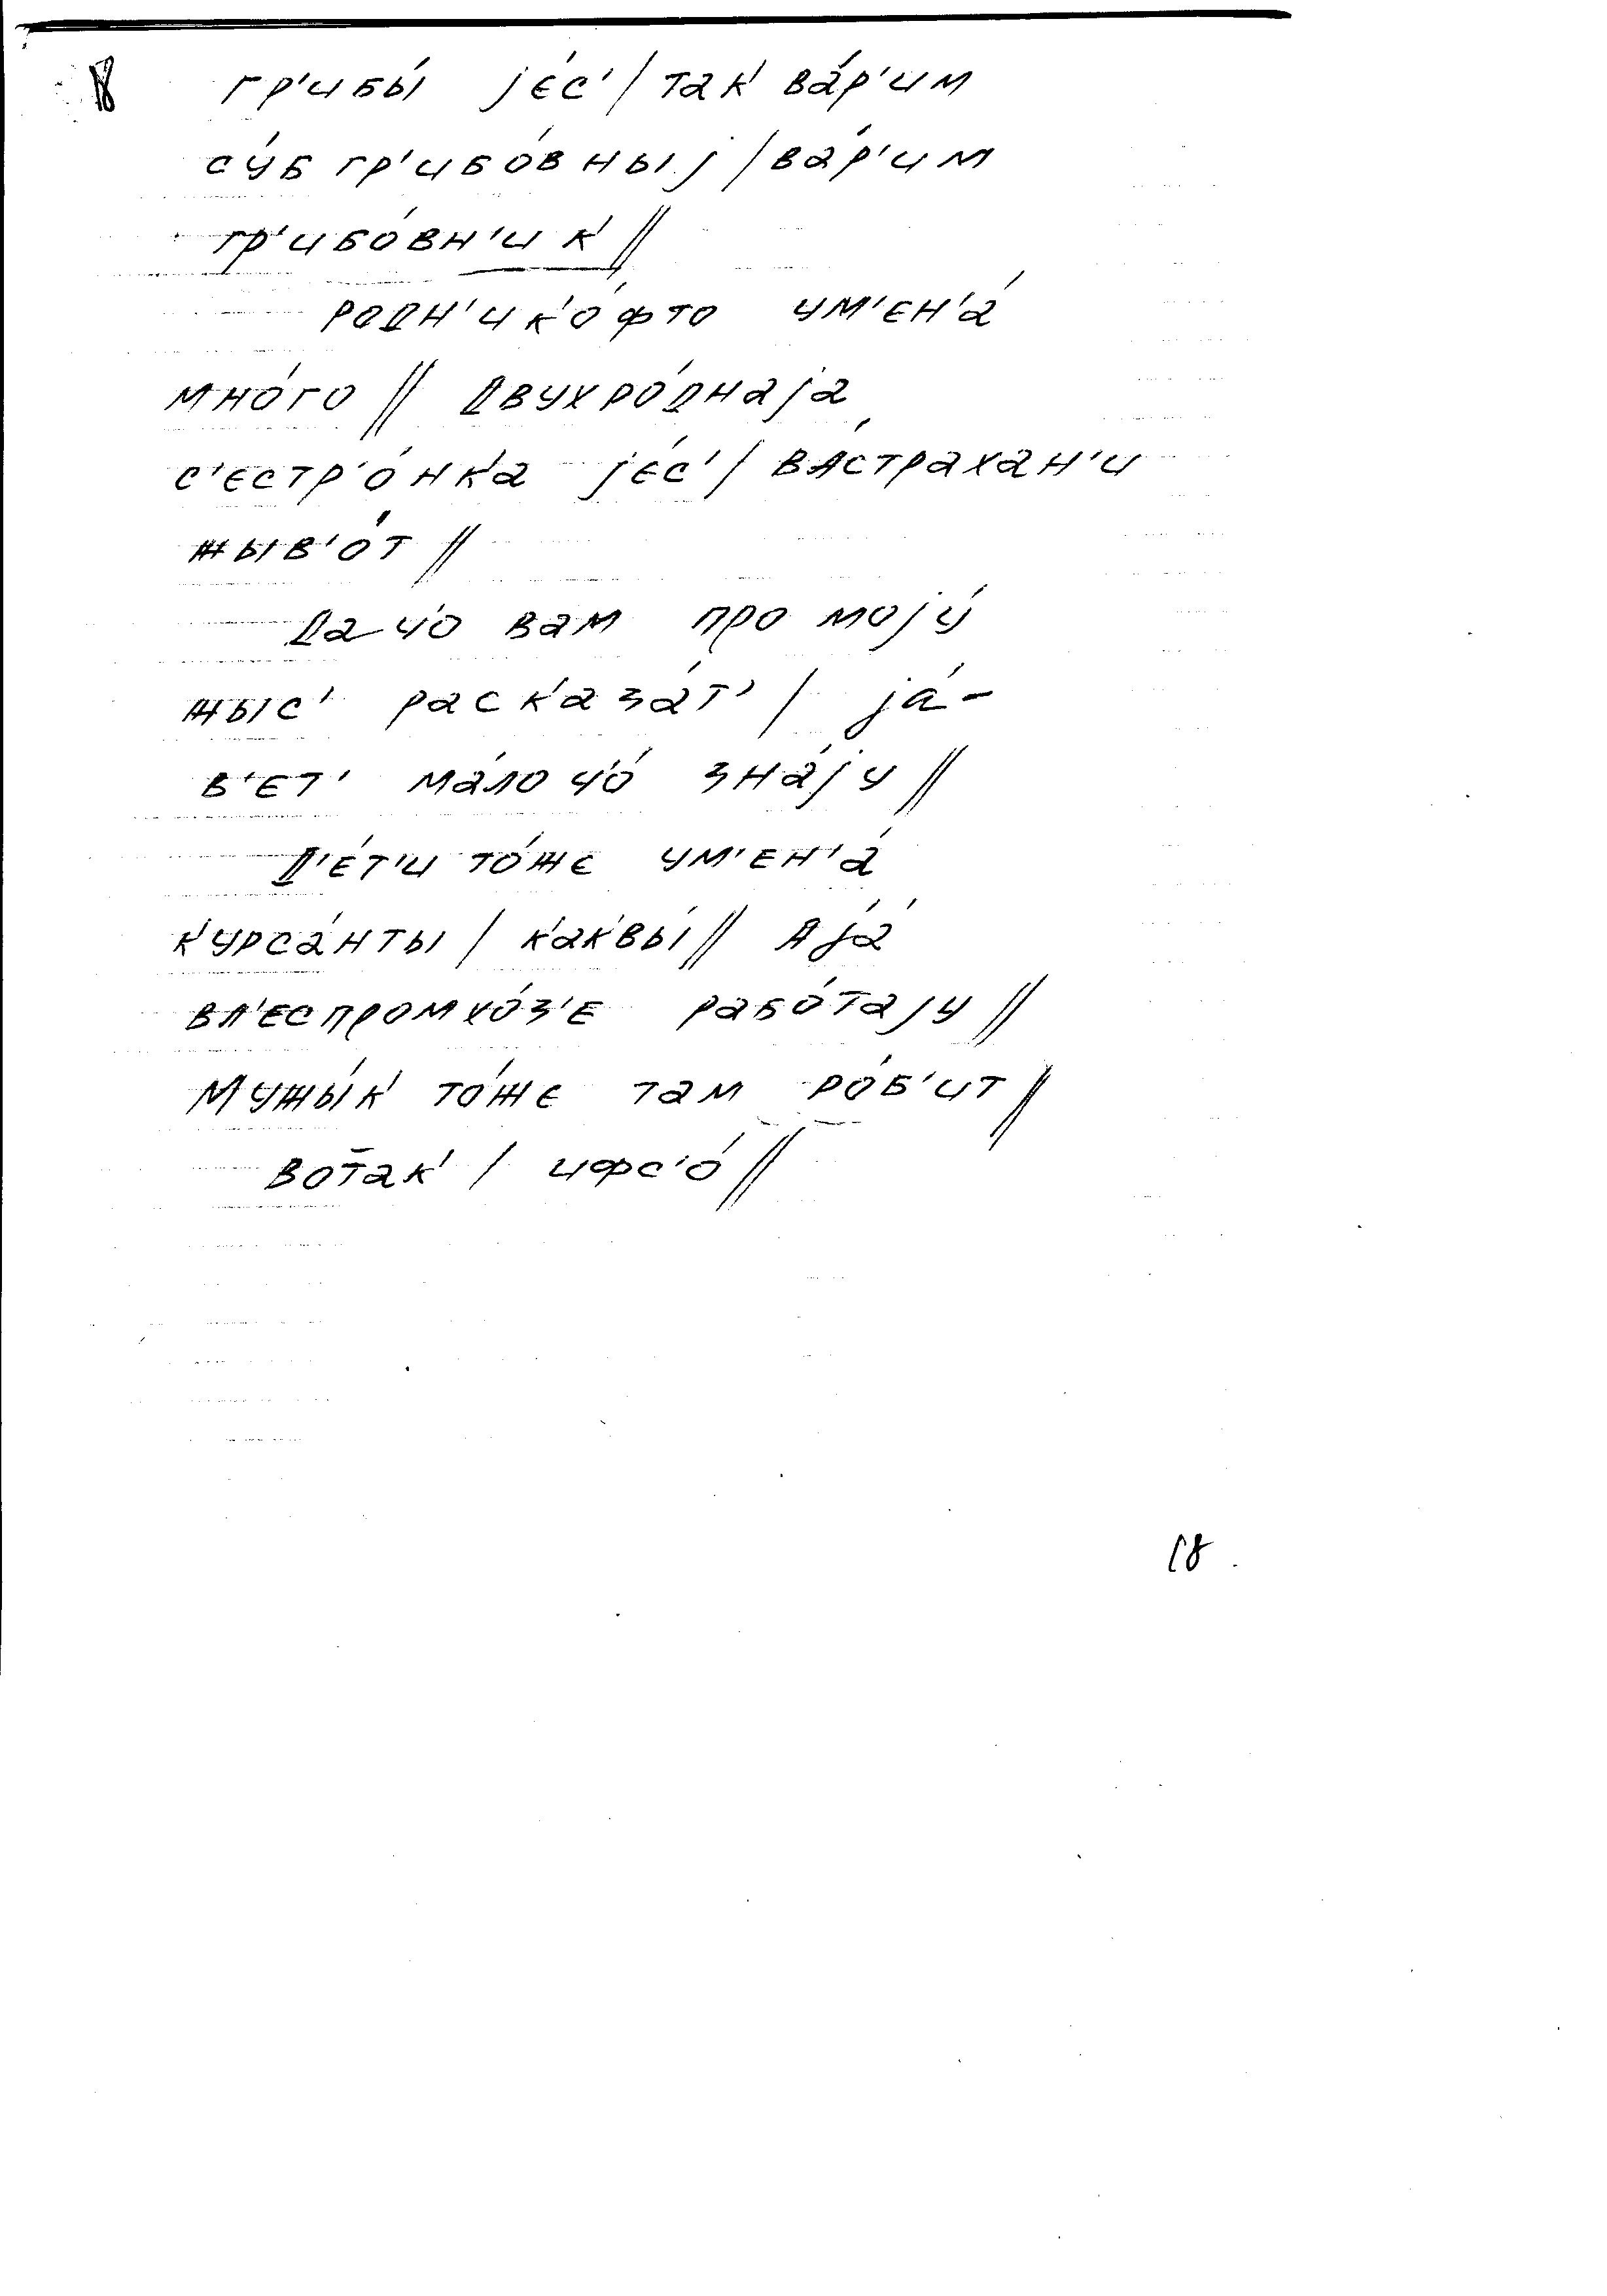 гр'ибы́ jéс' / так ва́р'им
су́б гр'ибо́вныj / ва́р'им
гр'ибо́вн'ик //
родн'ико́фто ум'ен'а́
мно́го // двухро́днаjа
с'естр'о́нка jéс' / ва́страхан'и
жыв'о́т //
Да чо вам про моjу́
жыс' расказа́т' / jа́-
в'ет' ма́ло чо́ зна́jу //
Д'е́т'и то́же ум'ен'а́
курса́нты / каквы́ // А jа́
вл'еспромхо́з'е рабо́таjу //
Мужы́к то́же там ро́б'ит //
вот̄ак / ифс'о́ //
18